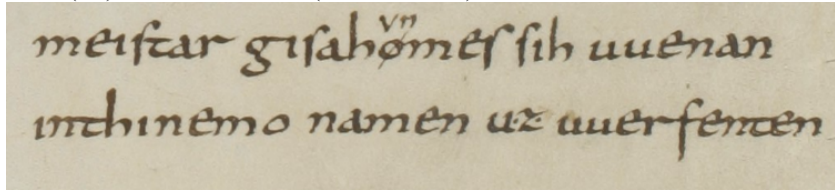 meistar gisahvnmes sih uuenan
inthinemo namen uz uuerfenten